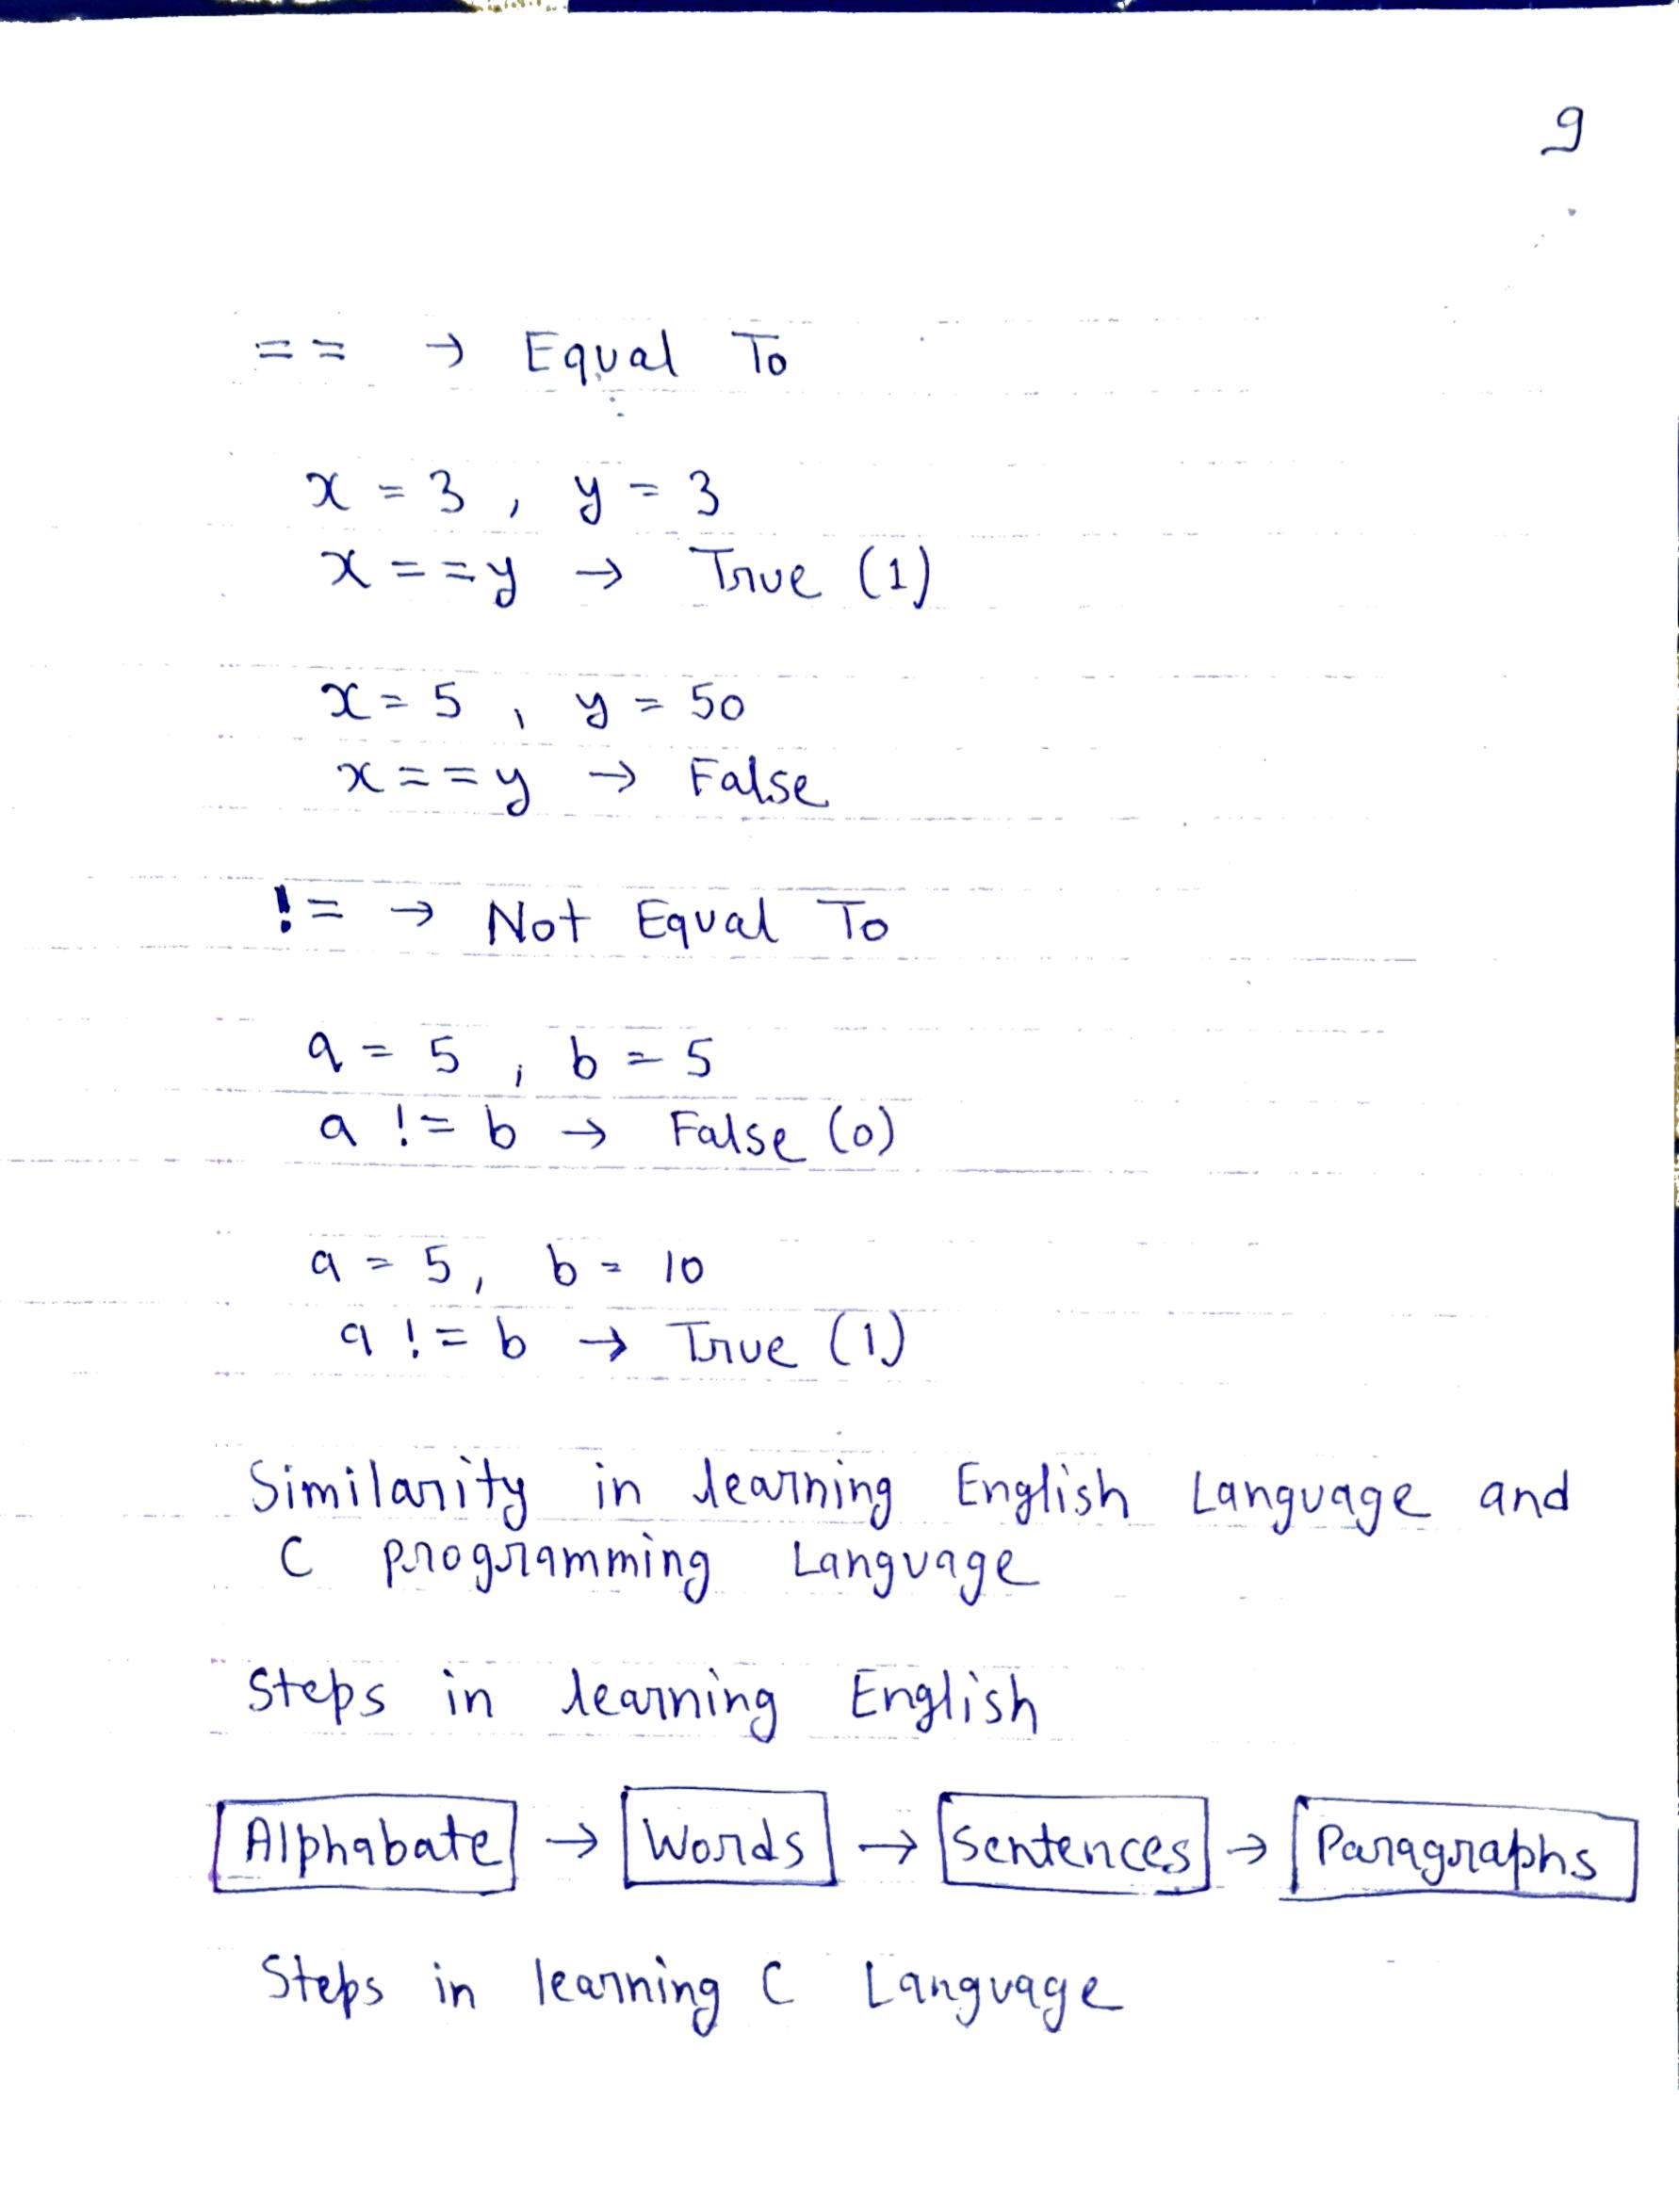 9
== → Equal To
x = 3 , y = 3
x == y → True (1)
x = 5 , y = 50
x == y → False
!= → Not Equal To
a = 5 , b = 5
a != b → False (0)
a = 5, b = 10
a != b → True (1)
Similarity in learning English Language and
C programming Language
Steps in learning English
Alphabate → Words → Sentences → Paragraphs
Steps in learning C Language